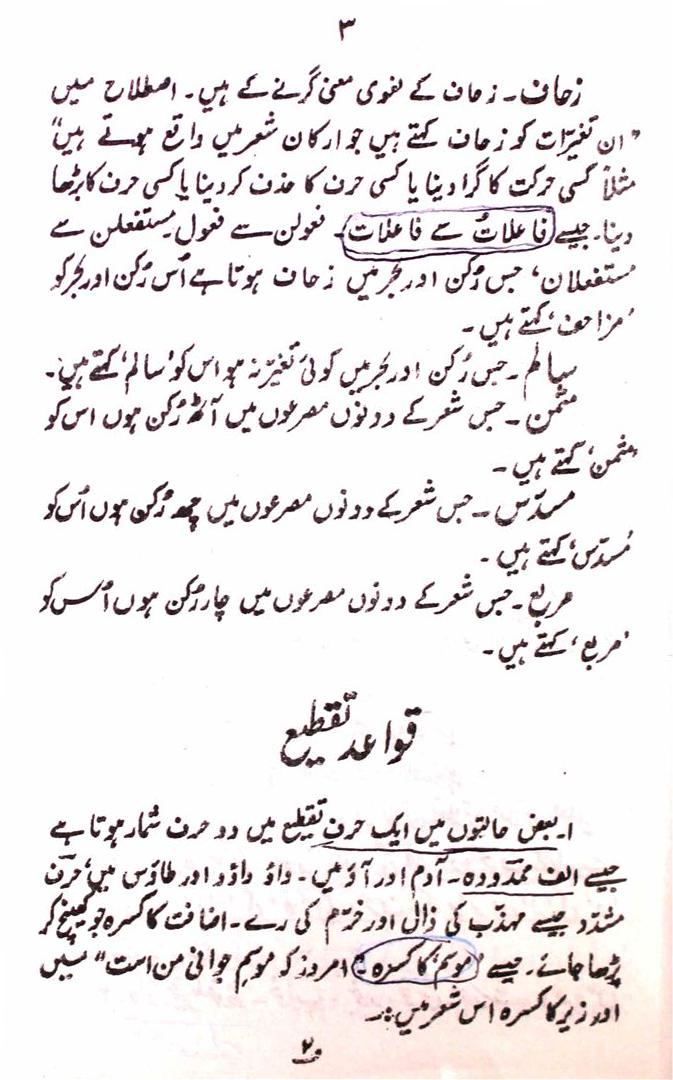 ۳
زحاف۔ زحاف کے لغوی معنی گرنے کے ہیں۔ اصطلاح میں
"ان تغیرّات کو زحاف کہتے ہیں جو ارکان شعر میں واقع ہوتے ہیں"
مثلاً کسی حرکت کا گرا دینا یا کسی حرف کا حذف کر دینا یا کسی حرف کا بڑھا
دینا۔ جیسے فاعلاتُ سے فاعلات۔ فعولن سے فعول۔ مستفعلن سے
مستفعلان، جس رُکن اور بحر میں زحاف ہوتا ہے اُس رُکن اور بحر کو
'مزاحف' کہتے ہیں۔
سالم۔ جس رُکن اور بحر میں کوئی تغیّر نہ ہو اس کو 'سالم' کہتے ہیں۔
مثمن۔ جس شعر کے دونوں مصرعوں میں آٹھ رُکن ہوں اس کو
'مثمن' کہتے ہیں۔
مسدّس۔ جس شعر کے دونوں مصرعوں میں چھ رُکن ہوں اُس کو
'مُسدّس' کہتے ہیں۔
مربع۔ جس شعر کے دونوں مصرعوں میں چار رُکن ہوں اُس کو
'مربع' کہتے ہیں۔
قواعد تقطیع
۱۔ بعض حالتوں میں ایک حرف تقطیع میں دو حرف شمار ہوتا ہے
جیسے الف ممدودہ۔ آدم اور آؤ میں۔ واؤ داؤد اور طاؤس میں، حرف
مشدّد جیسے مہذّب کی ذال اور خرّم کی رے۔ اضافت کا کسرہ جو کھینچ کر
پڑھا جائے۔ جیسے 'موسم' کا کسرہ: امروز کہ موسمِ جوانی من است" میں
اور زیر کا کسرہ اس شعر میں:۔